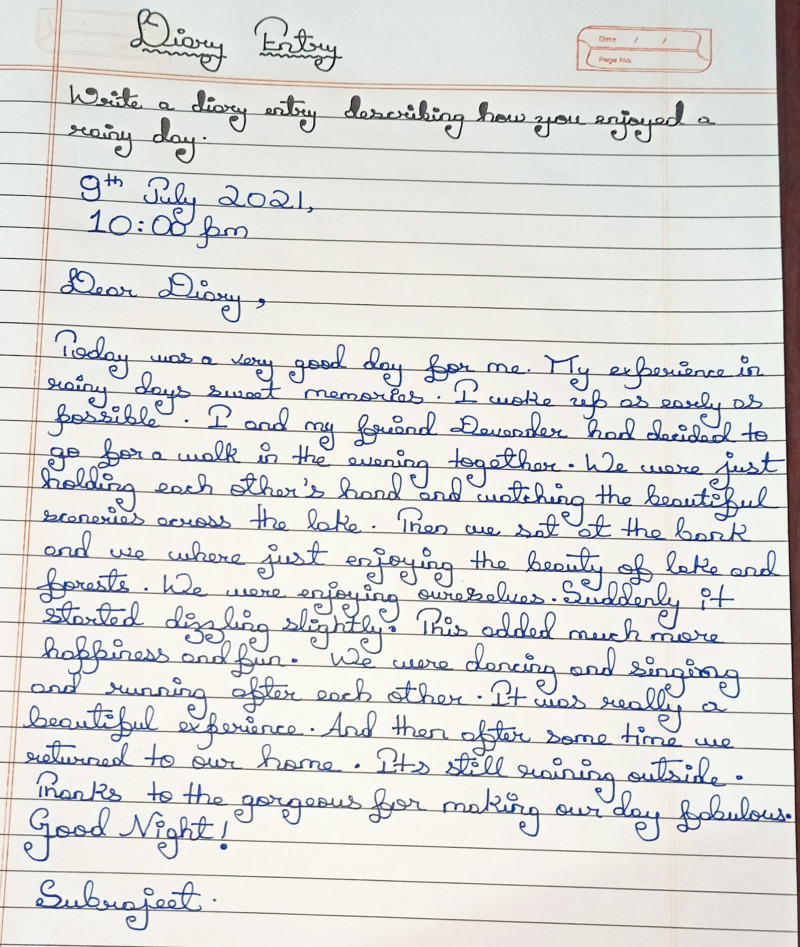 Diary Entry
Date / /
Page No.
Write a diary entry describing how you enjoyed a
rainy day.
9th July 2021,
10:00 pm
Dear Diary,
Today was a very good day for me. My experience in
rainy days sweet memories. I woke up as early as
possible. I and my friend Devender had decided to
go for a walk in the evening together. We were just
holding each other's hand and watching the beautiful
sceneries across the lake. Then we sat at the bank
and we where just enjoying the beauty of lake and
forests. We were enjoying ourselves. Suddenly it
started dizzling slightly. This added much more
happiness and fun. We were dancing and singing
and running after each other. It was really a
beautiful experience. And then after some time we
returned to our home. Its still raining outside.
Thanks to the gorgeous for making our day fabulous.
Good Night!
Subrajeet.